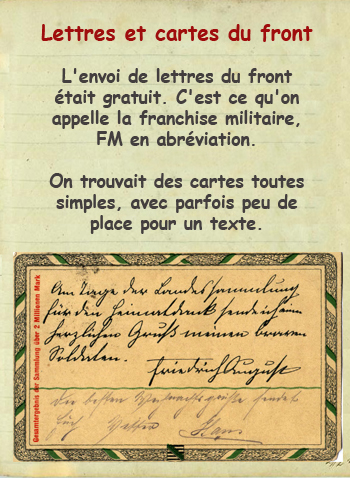 Lettres et cartes du front
L'envoi de lettres du front
était gratuit. C'est ce qu'on
appelle la franchise militaire,
FM en abréviation.
On trouvait des cartes toutes
simples, avec parfois peu de
place pour un texte.
Gesamtergebnis der Sammlung über 2 Millionen Mark
Am Tage der Landessammlung
für den Heimatdank sende ich einen
herzlichen Gruß meinen braven
Soldaten.
Friedrich August
Die besten Weihnachtsgrüße sendet
Hans